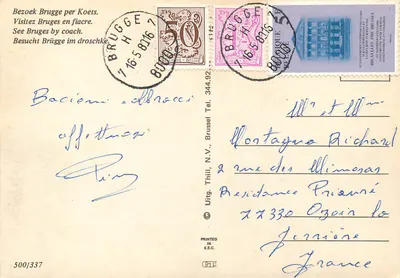 Bezoek Brugge per Koets.
Visitez Bruges en fiacre.
See Bruges by coach.
Besucht Brügge im droschke
BRUGGE
H
16-5-83 16
8000
50
BRUGGE
H
16-5-83 16
8000
Bacioni abbracci
affettuosi
© Uitg. Thill, N.V., Brussel Tel. 344.92
PRINTED
IN
E.E.C.
Mr et Mm
Montagna Richard
2 rue des Mimosas
Residence Prieuré
77330 Ozoir la
Ferrière
France
500/337